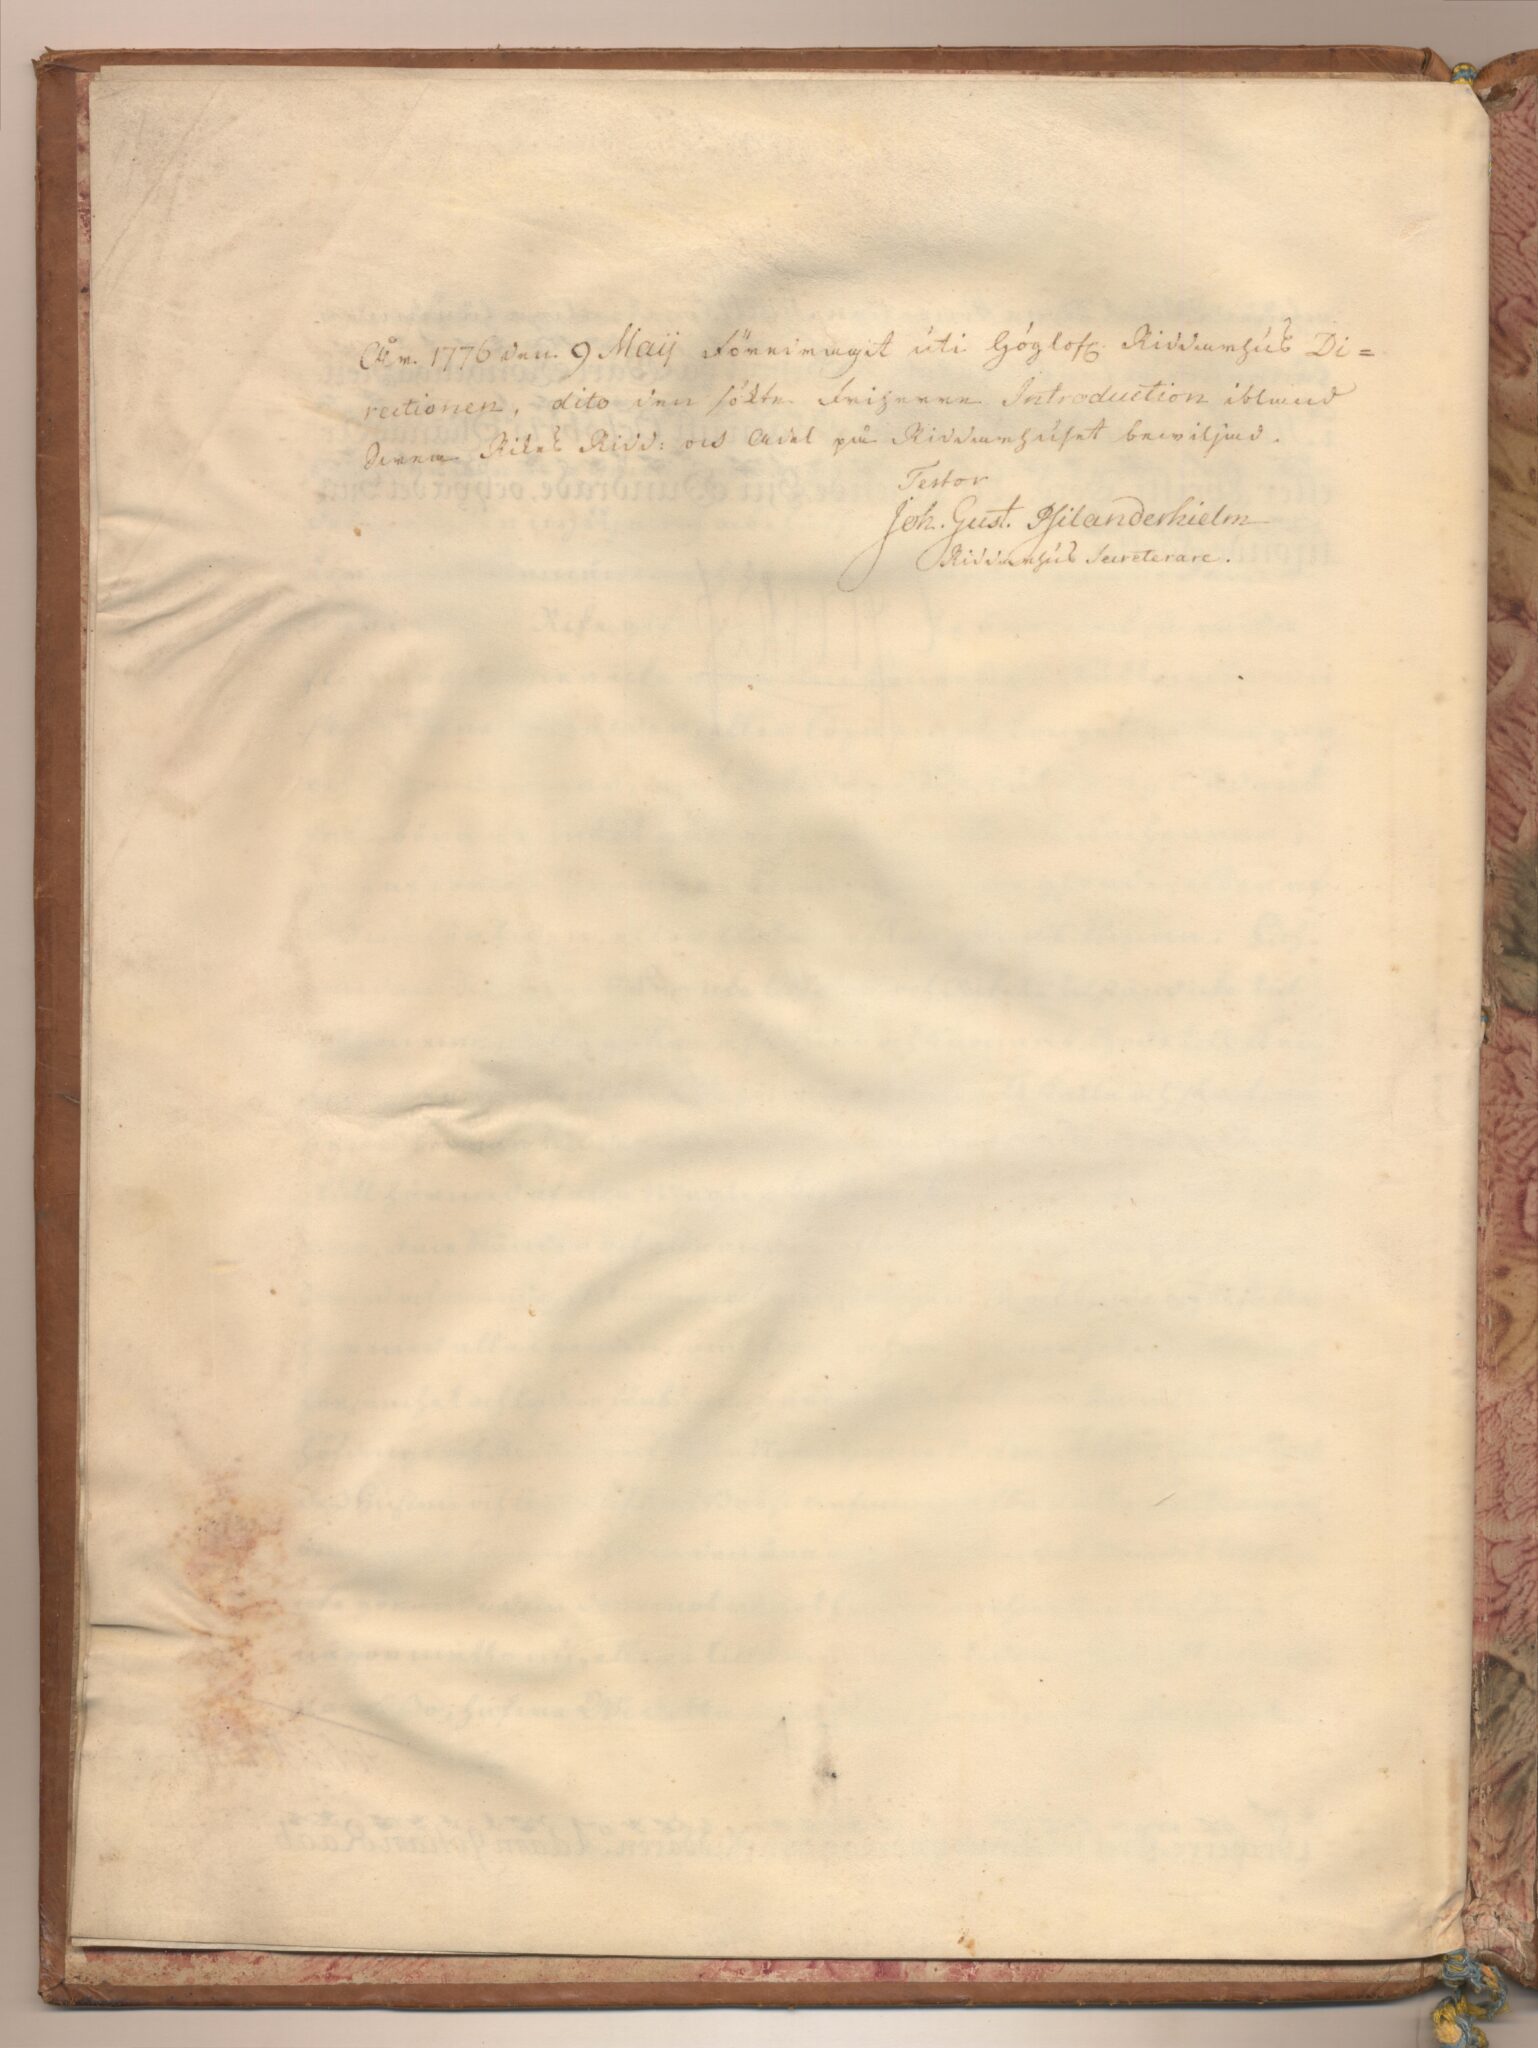 År 1776 den 9 Maij Föredragit uti Höglofl. Riddarhús Di=
rectionen, dito den sökte Friherre Introduction ibland
Svea Rikes Ridd: och Adel på Riddarhúset beviljad.
Testor
Joh. Gust. Psilanderhielm
Riddarhús Secreterare.